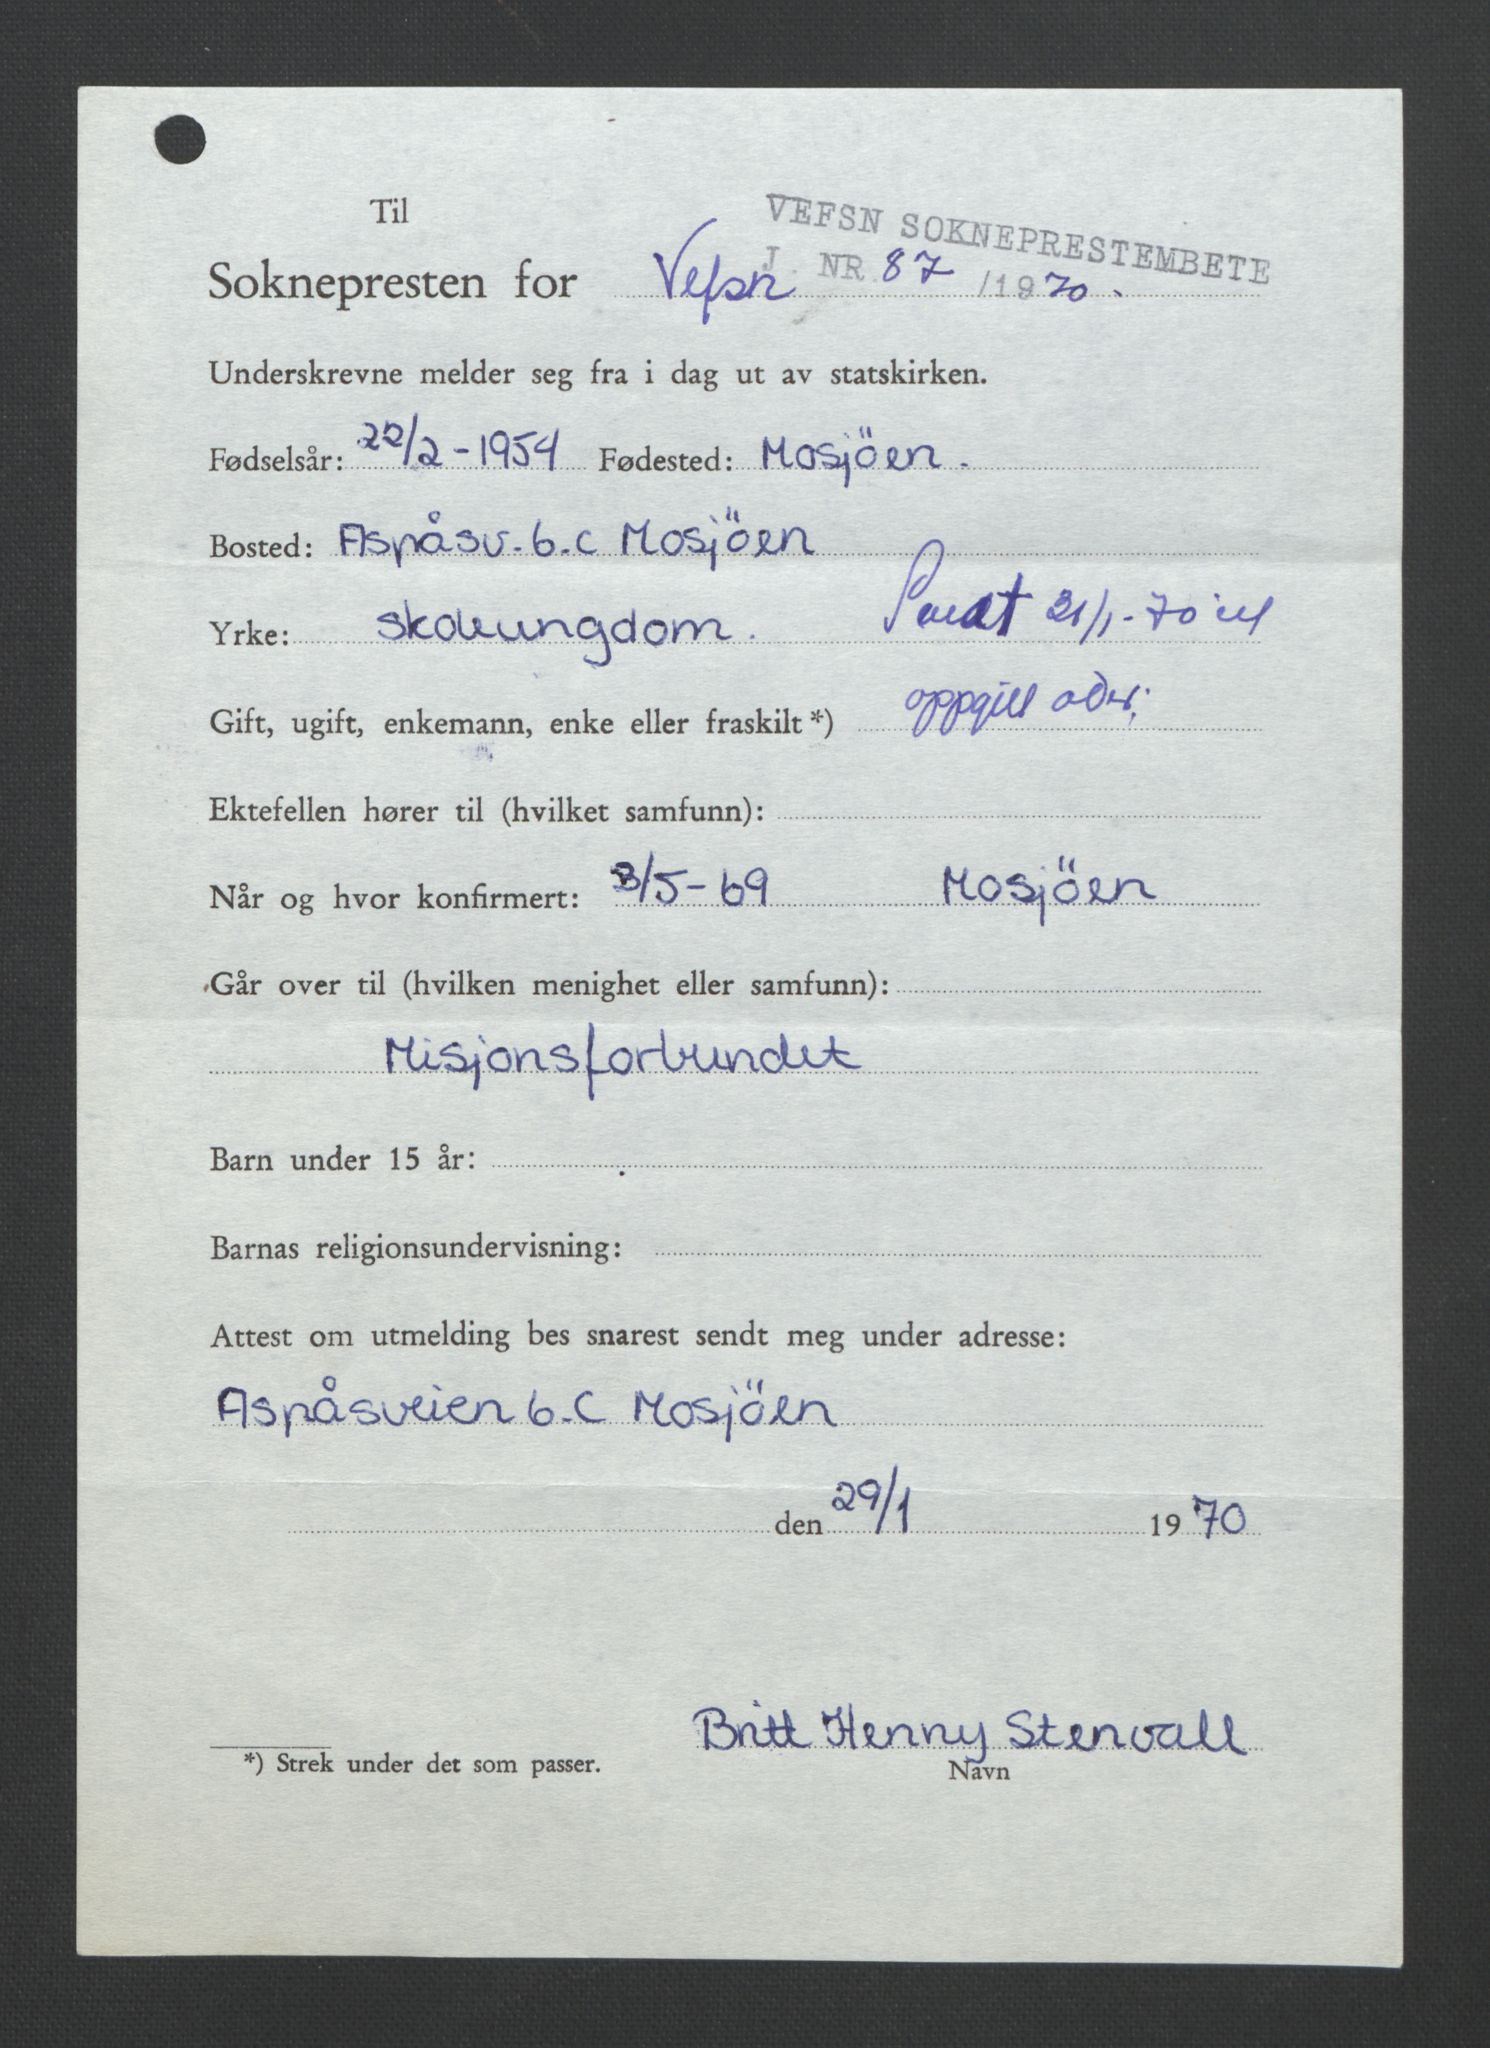 Til
VEFSN SOKNEPRESTEMBETE
J. NR 87 /1970.
Soknepresten for Vefsn
Underskrevne melder seg fra i dag ut av statskirken.
Fødselsår: 22/2-1954 Fødested: Mosjöen.
Bosted: Aspåsv. 6.C Mosjöen
Yrke: skoleungdom. Sendt 31/1-70 til
Gift, ugift, enkemann, enke eller fraskilt *) oppgitt adr.
Ektefellen hører til (hvilket samfunn):
Når og hvor konfirmert: 3/5-69 Mosjöen
Går over til (hvilken menighet eller samfunn):
Misjonsforbundet
Barn under 15 år:
Barnas religionsundervisning:
Attest om utmelding bes snarest sendt meg under adresse:
Aspåsveien 6.C Mosjöen
den 29/1 1970
Britt Henny Stenvall
*) Strek under det som passer.
Navn